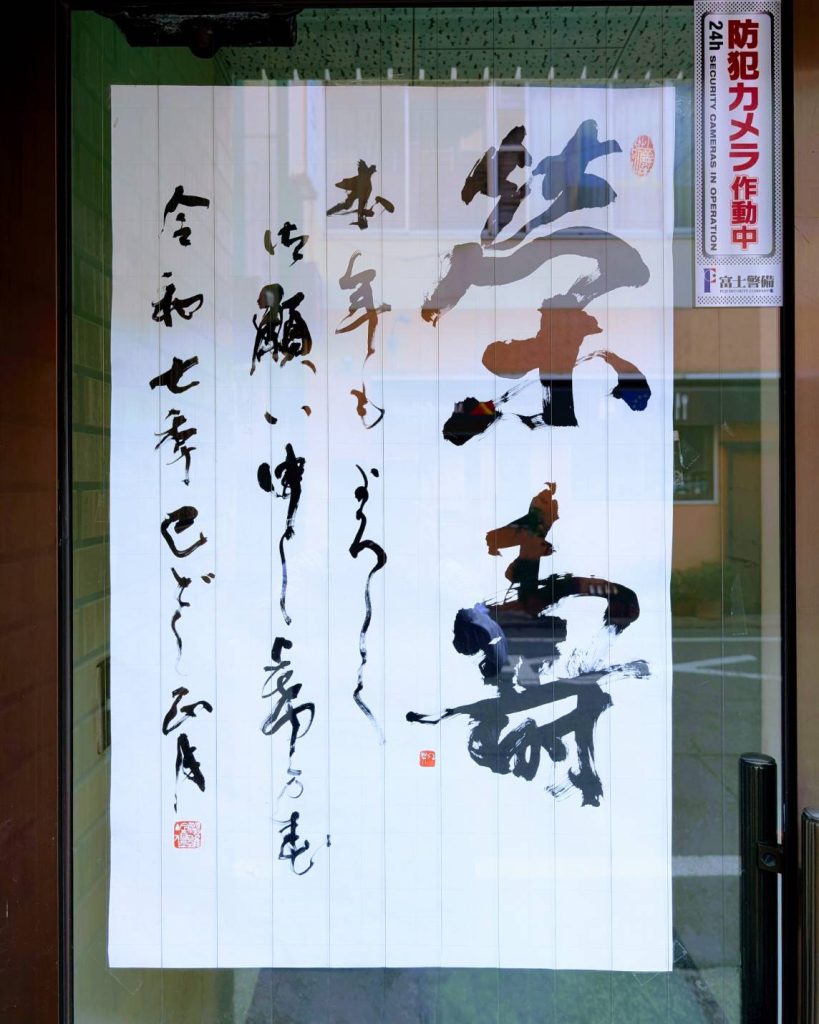 榮壽
本年もよろしく
御願い申し上希万春
令和七季巳どし正月
防犯カメラ作動中
24h SECURITY CAMERAS IN OPERATION
富士警備